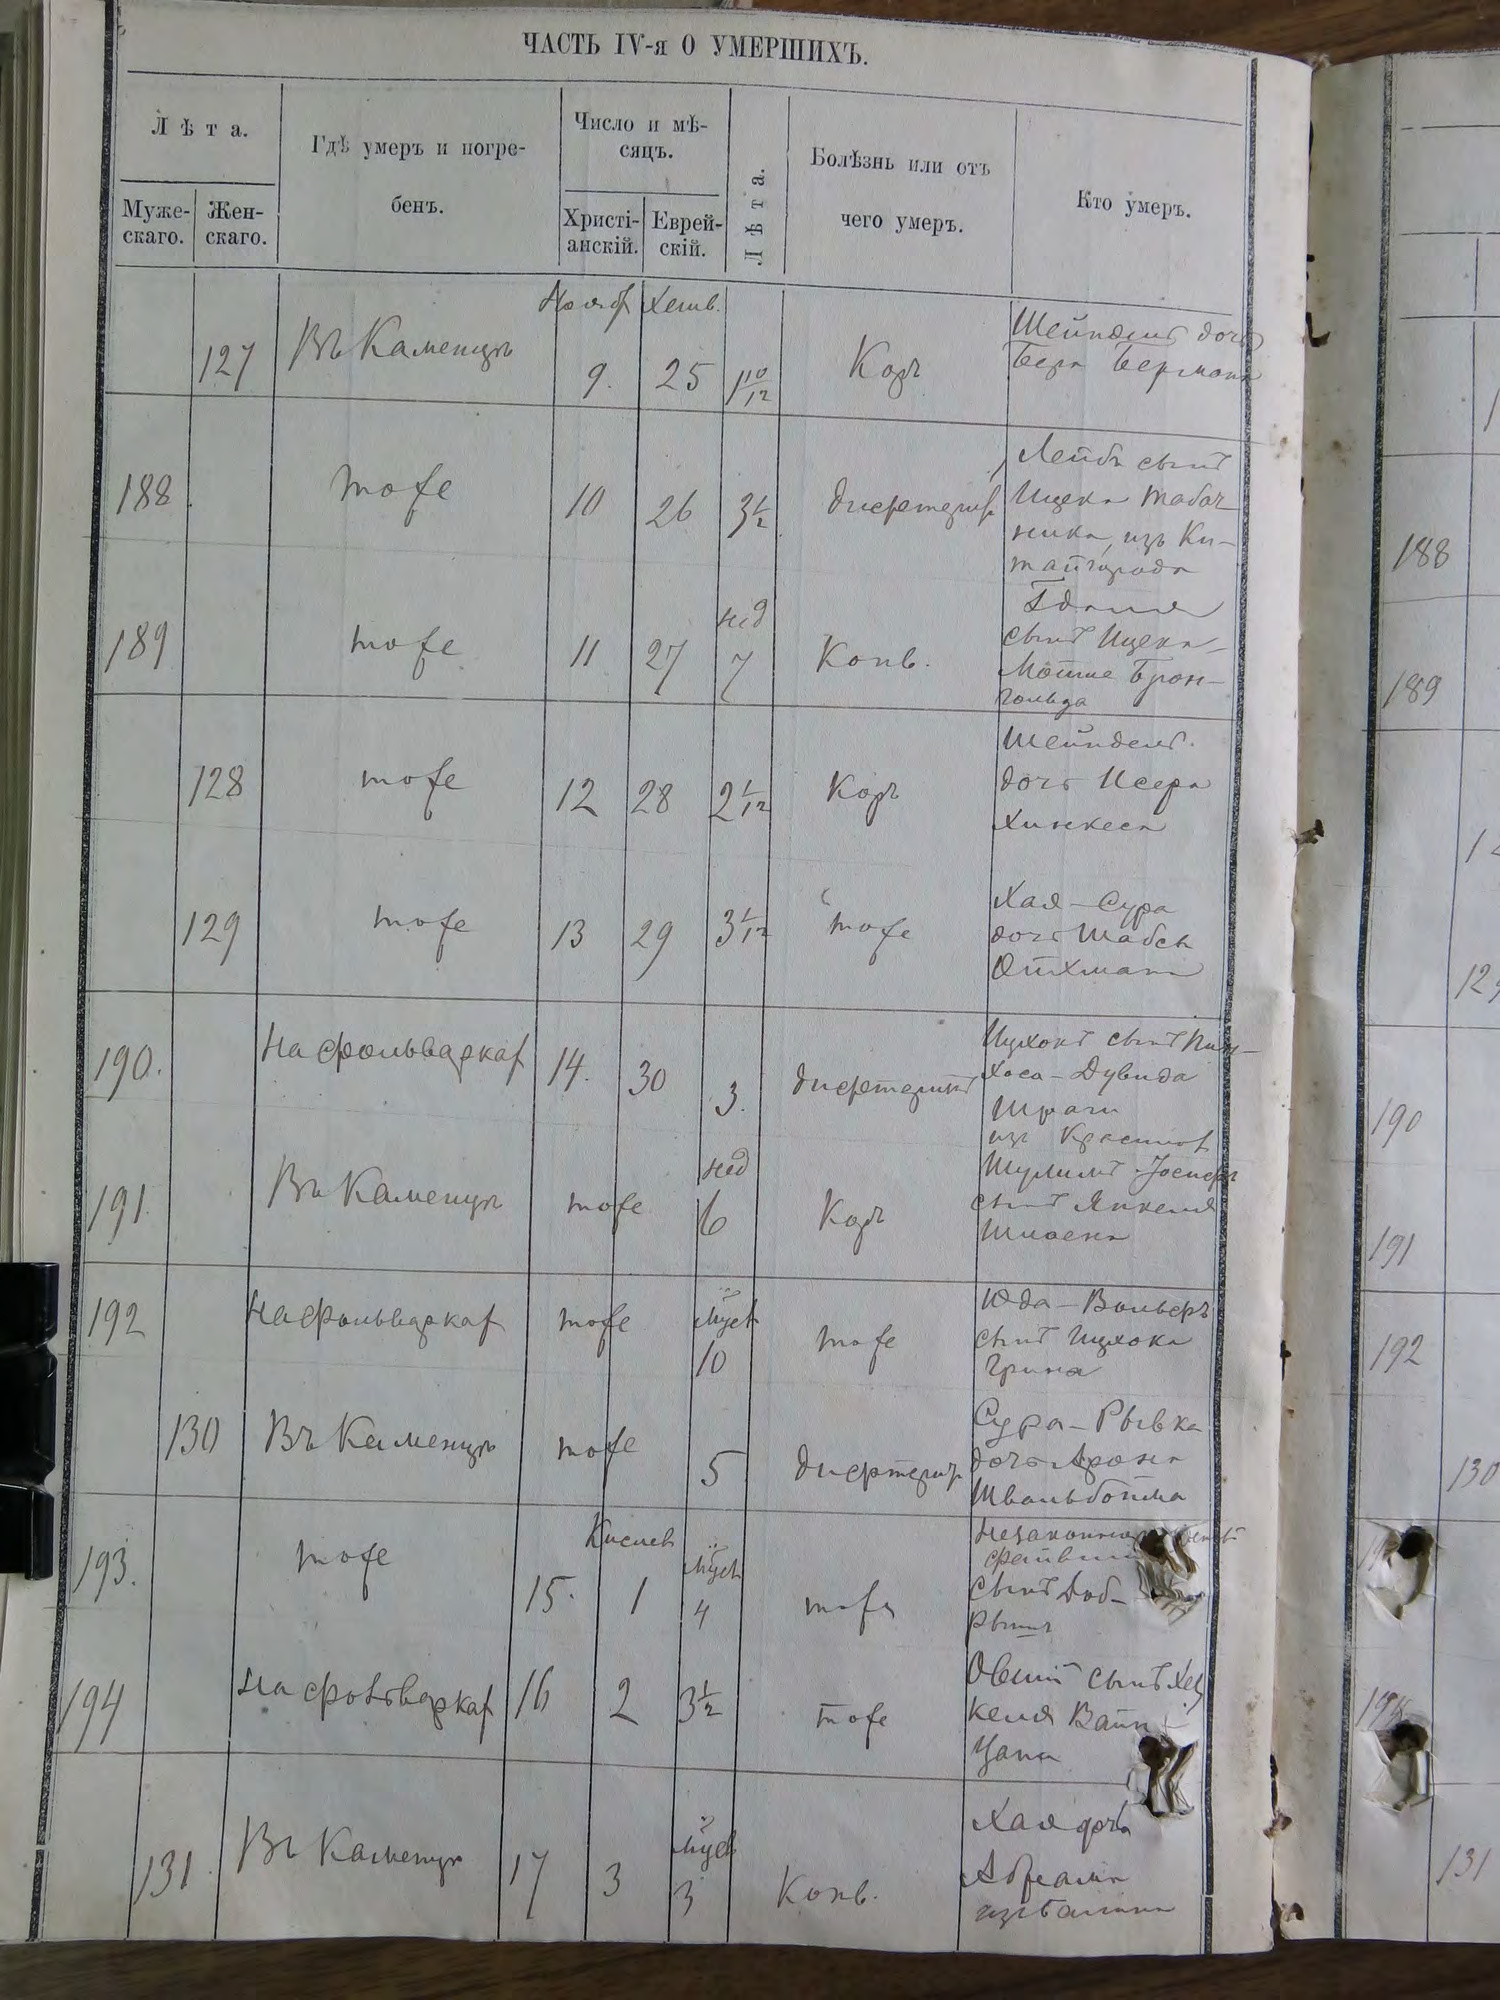 ЧАСТЬ IV-я О УМЕРШИХЪ.
Лѣта.
Муже-
скаго.
Жен-
скаго.
Гдѣ умеръ и погре-
бенъ.
Число и мѣ-
сяцъ.
Христі-
анскій.
Еврей-
скій.
Лѣта.
Болѣзнь или отъ
чего умеръ.
Кто умеръ.
Нояб Хешв.
127 Въ Каменцѣ 9. 25 1 10/12 Корь
дочь
Бера Бермана
188 тоже 10 26 3 1/2 дифтерит
Лейбъ сынъ
Ицека Табач-
ника, изъ Ки-
тайгорода
189 тоже 11 27 нед 7 Конв.
сынъ Ицека-
Мошка Брон-
гольда
128 тоже 12 28 2 1/12 Корь
Шейндель
дочь Исера
Хинкеса
129 тоже 13 29 3 1/12 тоже
Хая-Сура
дочь Шабсы
190. На фольварках 14. 30 3. дифтеритъ
Ицхокъ сынъ Пин-
хоса-Дувида
191 Въ Каменцѣ тоже нед 6 Корь
Шулимъ Іосифъ
сынъ Янкеля
192 На фольварках тоже мѣсяц 10 тоже
Юда-Вольфъ
сынъ Ицхока
Грина
130 Въ Каменцѣ тоже 5 дифтерит
Сура-Рывка
дочь Арона
Швальбойма
193. тоже Кислев 15. 1 мѣсяц 4 тоже
сынъ Доб-
рыши
194 На фольварках 16 2 3 1/2 тоже
Овшій сынъ Хец
келя Вайн
цана
131 Въ Каменцѣ 17 3 мѣсяц 3 Конв.
Хая дочь
Абрама
188
189
190
191
192
130
131